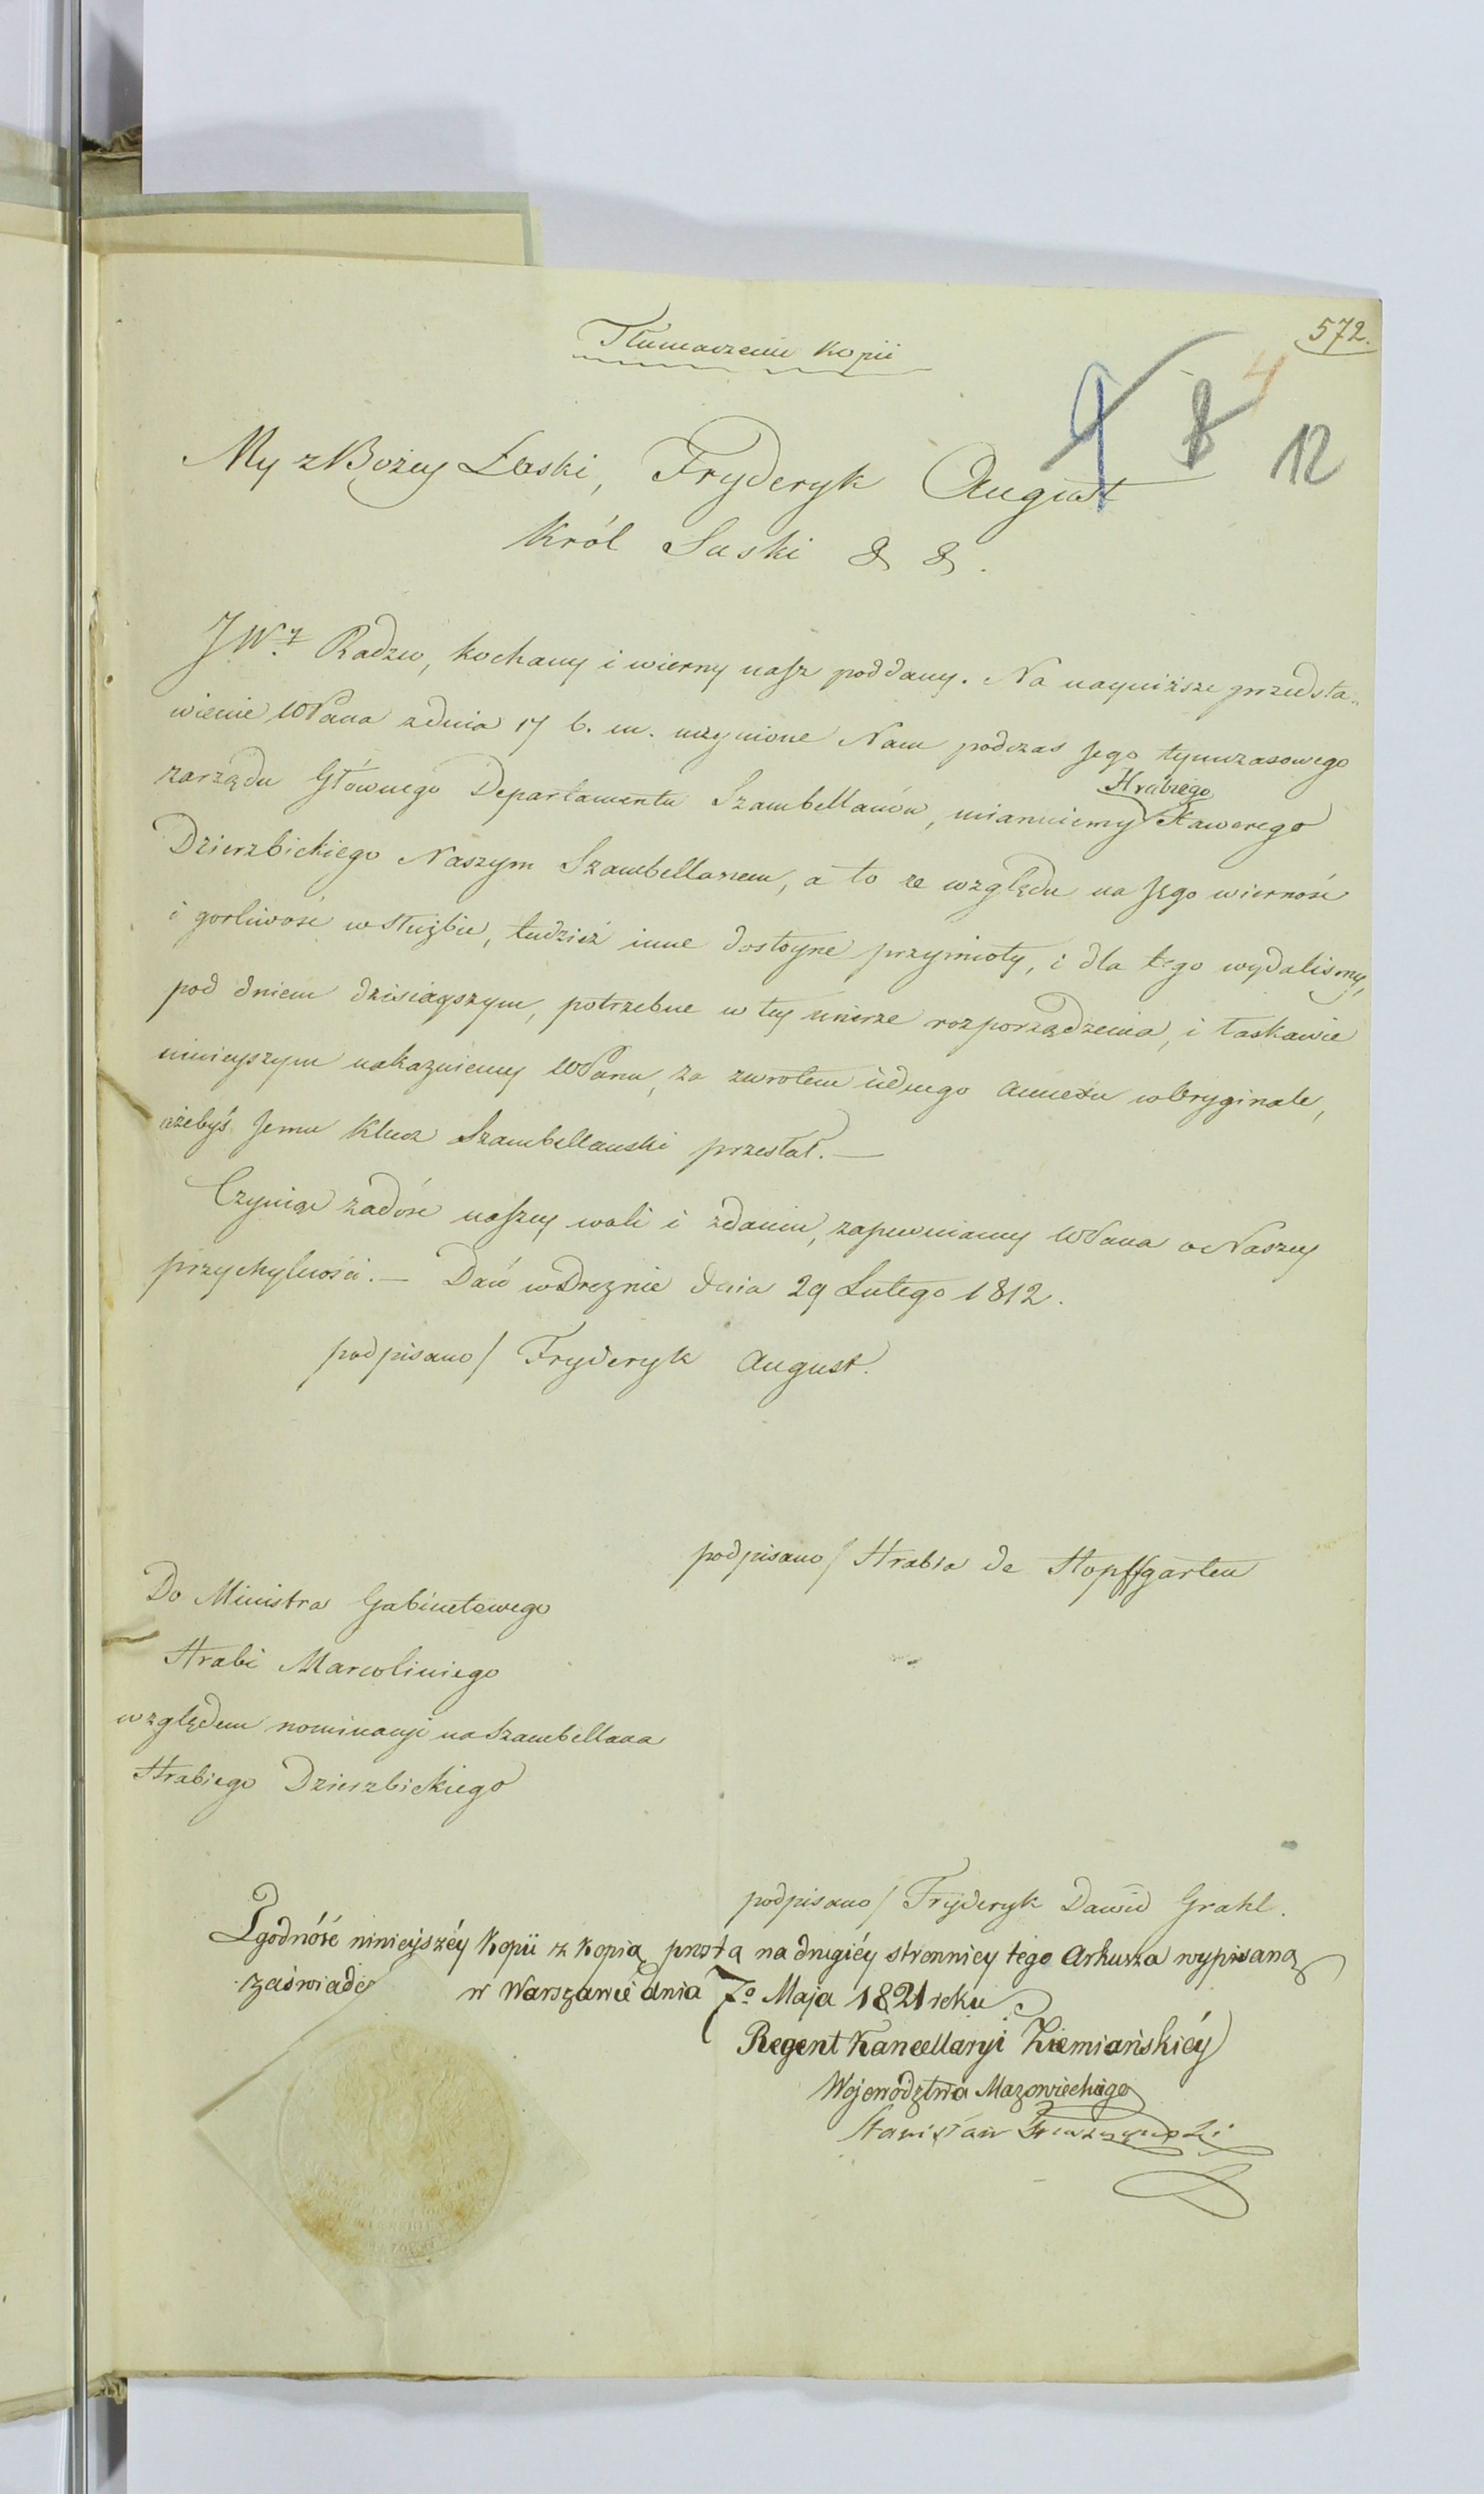 572.
Tłumaczenie Kopii
9 8 4 12
My z Bożey Łaski, Fryderyk August
Król Saski & &.
JWy Radzco, kochany i wierny nasz poddany. Na nayniższe przedsta-
wienie WPana z dnia 17 b. m. uczynione Nam podczas Jego tymczasowego
zarządu Głównego Departamentu Szambellanów, mianuiemy Hrabiego Xawerego
Dzierzbickiego Naszym Szambellanem, a to ze względu na Jego wierność
i gorliwość w służbie, tudzież inne dostoyne przymioty, i dla tego wydaliśmy,
pod dniem dzisiayszym, potrzebne w tey mierze rozporządzenia, i łaskawie
ninieyszym nakazuiemy WPanu, za zwrotem iednego annexu w Oryginale,
ażebyś Jemu Klucz Szambellański przesłał.—
Czyniąc zadość naszey woli i zdaniu, zapewniamy WPana o Naszey
przychylności.— Dan w Dreznie dnia 29 Lutego 1812.
podpisano/ Fryderyk August.
podpisano/ Hrabia de Hopffgarten
Do Ministra Gabinetowego
Hrabi Marcoliniego
względem nominacyi na Szambellana
Hrabiego Dzierzbickiego
podpisano/ Fryderyk Dawid Grahl.
Zgodność ninieyszéy Kopii z Kopią prostą na drugiéy stronnicy tego Arkusza wypisaną
zaświadcz w Warszawie dnia 7o Maja 1821 roku
Regent Kancellaryi Ziemiańskiéy
Województwa Mazowieckiego
Stanisław